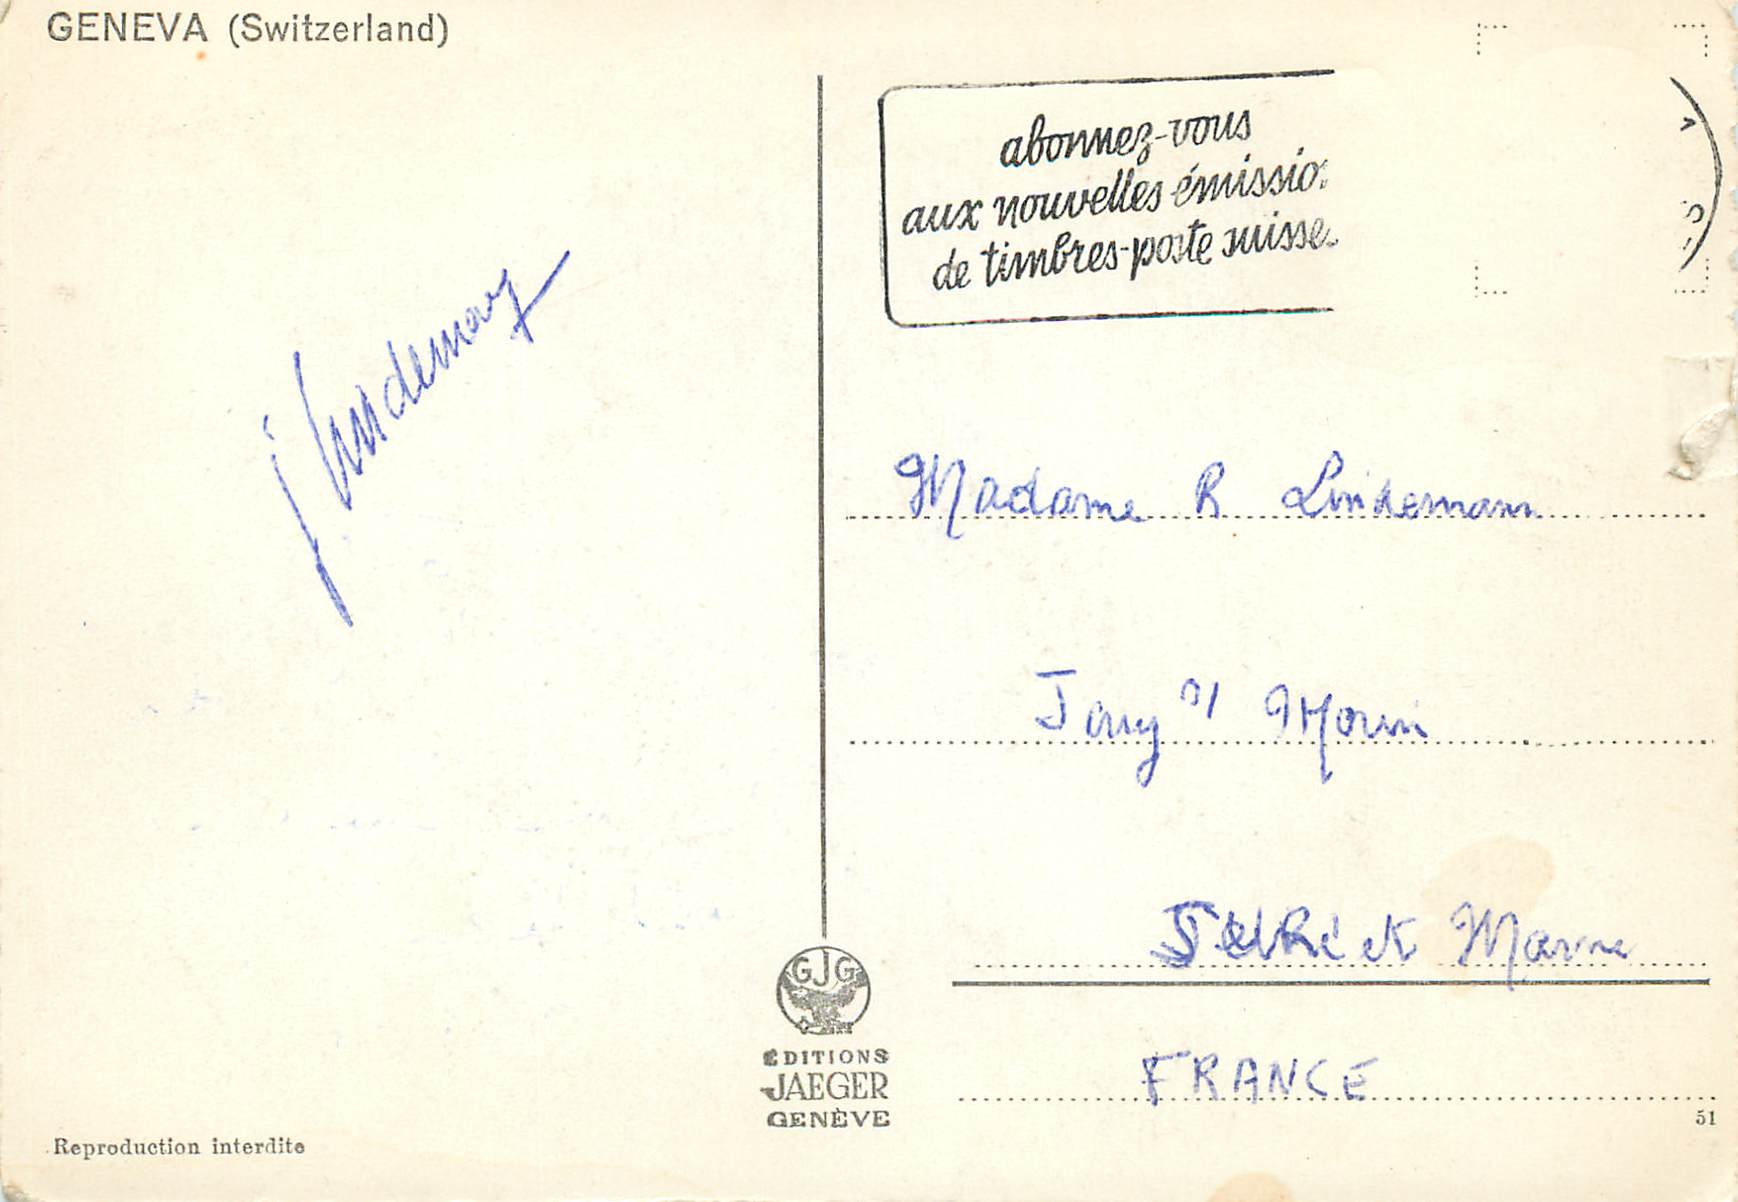 GENEVA (Switzerland)
abonnez-vous
aux nouvelles émissio
de timbres-poste suisse
J. Lindemann
Madame R Lindemann
Jouy s/ Morin
Seine et Marne
FRANCE
GJG
ÉDITIONS
JAEGER
GENÈVE
51
Reproduction interdite